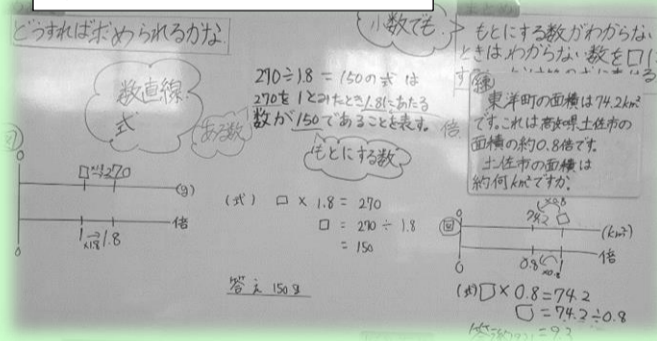 どうすればボめられるかな
数直線
式
ある数
小数でも
270÷1.8=150の式は
270を1とみたとき1.8にあたる
数が150であることを表す。
倍
もとにする数
□ 270
(g)
倍
0
1 ×1.8 1.8
(式) □ × 1.8 = 270
□ = 270 ÷ 1.8
= 150
答え 150g
もとにする数がわからない
ときはわからない数を□に
東洋町の面積は74.2km²
です。これは高知県土佐市の
面積の約0.8倍です。
土佐市の面積は
約何km²ですか。
図
0 74.2 □ (km²)
×0.8
0 0.8 1 倍
(式) □ × 0.8 = 74.2
□ = 74.2 ÷ 0.8